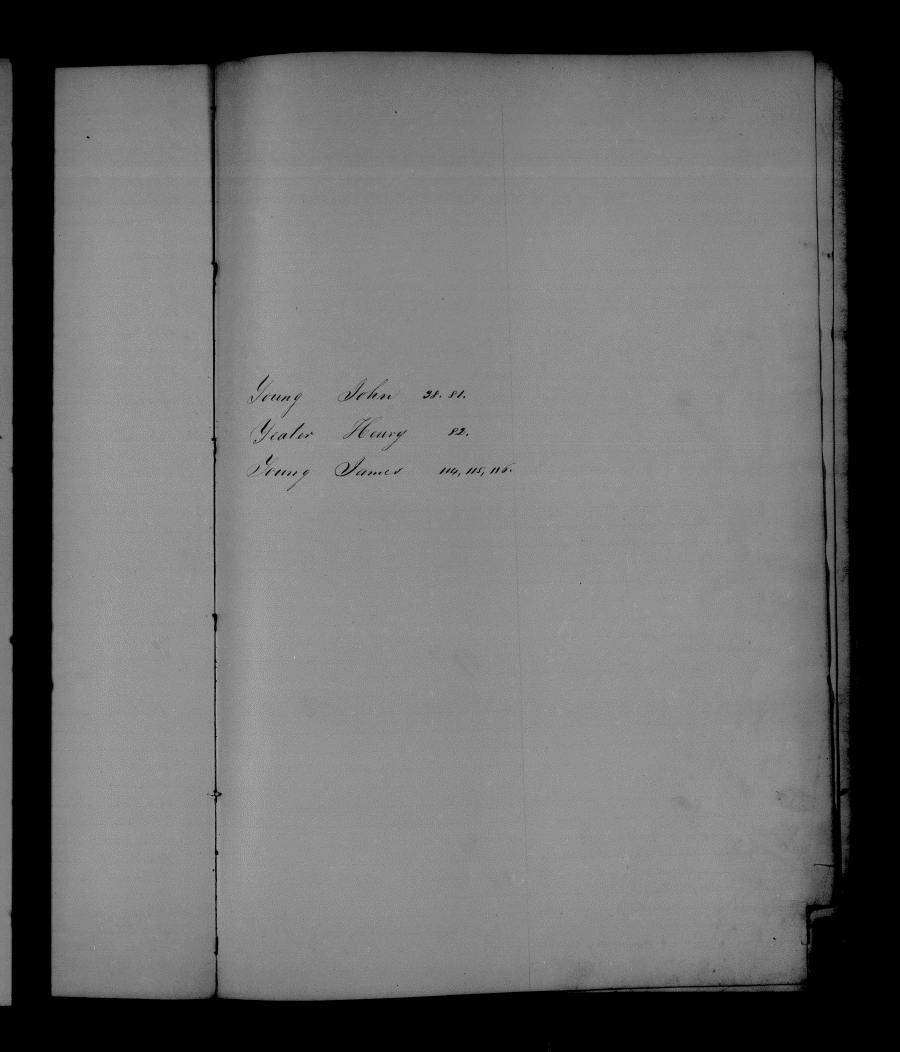 Young John 38. 81.
Yeater Henry 82.
Young James 114, 115, 116.